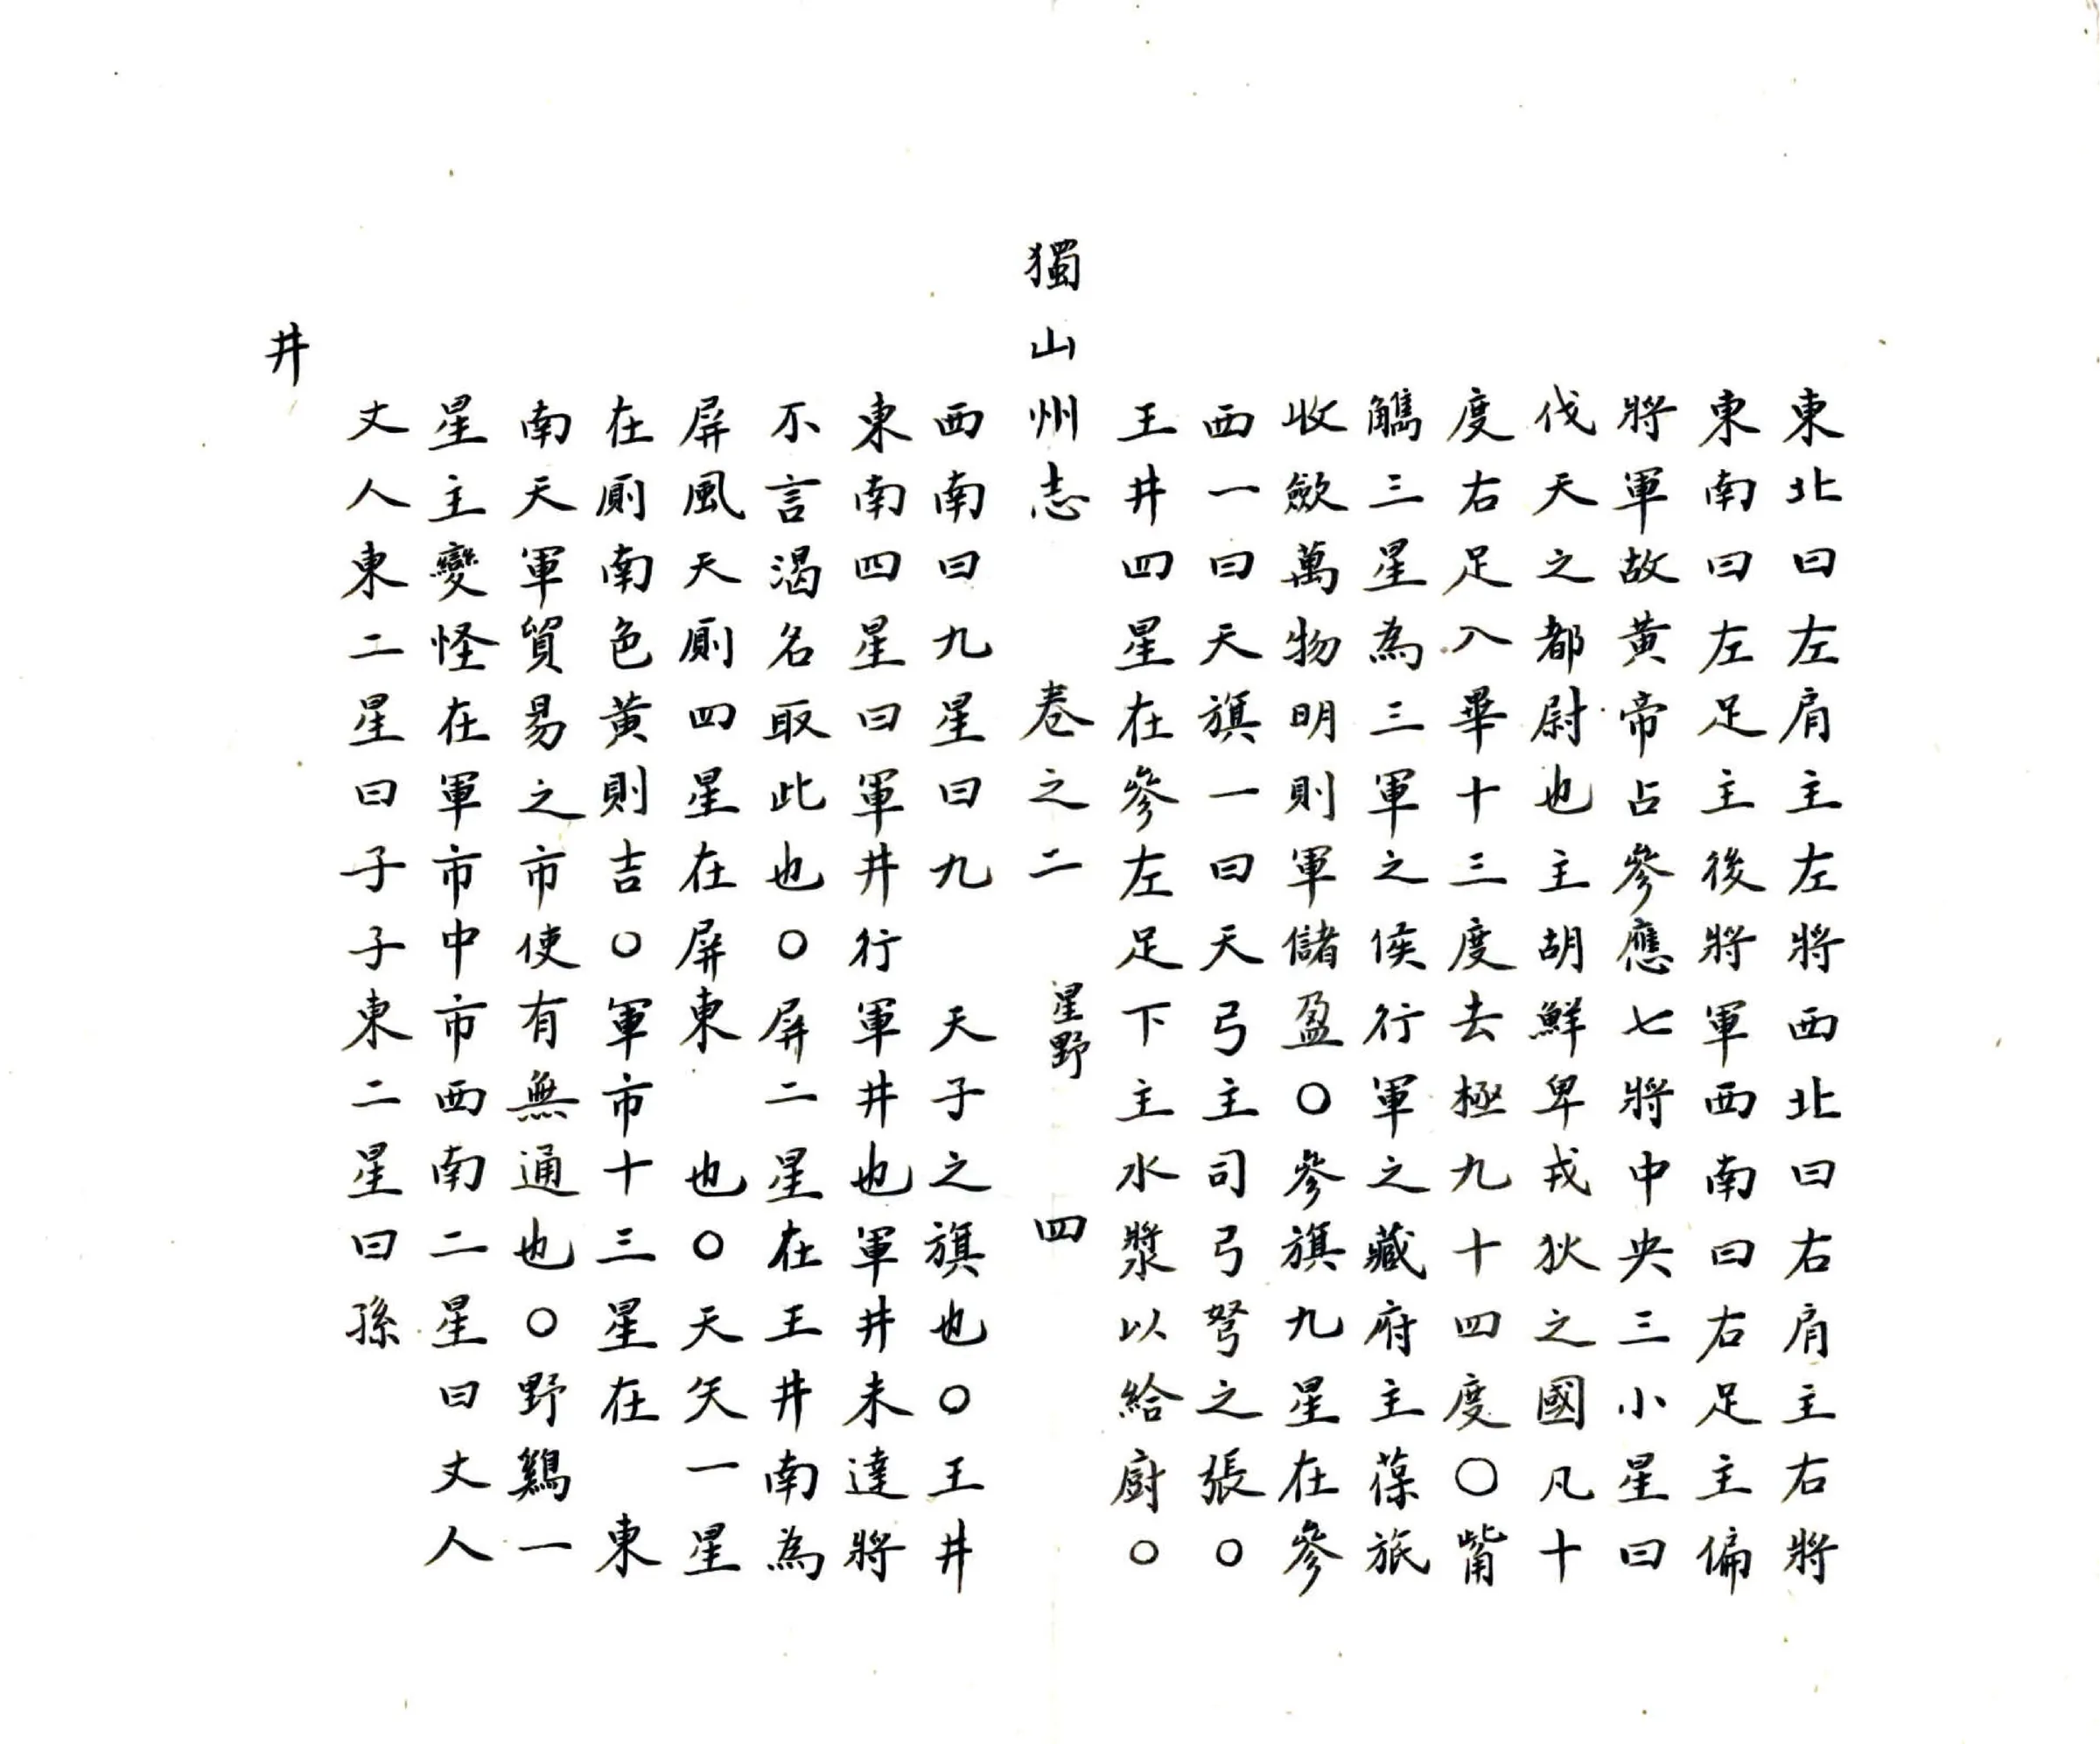 東北曰左肩主左將西北曰右肩主右將
東南曰左足主後將軍西南曰右足主偏
將軍故黃帝占參應七將中央三小星曰
伐天之都尉也主胡鮮卑戎狄之國凡十
度右足入畢十三度去極九十四度〇觜
觿三星為三軍之候行軍之藏府主葆旅
收斂萬物明則軍儲盈〇參旗九星在參
西一曰天旗一曰天弓主司弓弩之張〇
王井四星在參左足下主水漿以給廚〇
獨山州志 卷之二 星野 四
西南曰九星曰九 天子之旗也〇王井
東南四星曰軍井行軍井也軍井未達將
不言渴名取此也〇屏二星在王井南為
屏風天廁四星在屏東 也〇天矢一星
在廁南色黃則吉〇軍市十三星在 東
南天軍貿易之市使有無通也〇野鷄一
星主變怪在軍市中市西南二星曰丈人
丈人東二星曰子子東二星曰孫
井